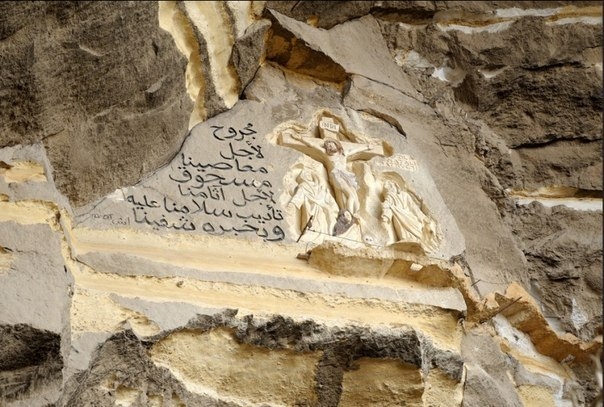 مجروح
لأجل
معاصينا
مسحوق
لأجل آثامنا
تأديب سلامنا عليه
وبحبره شفينا